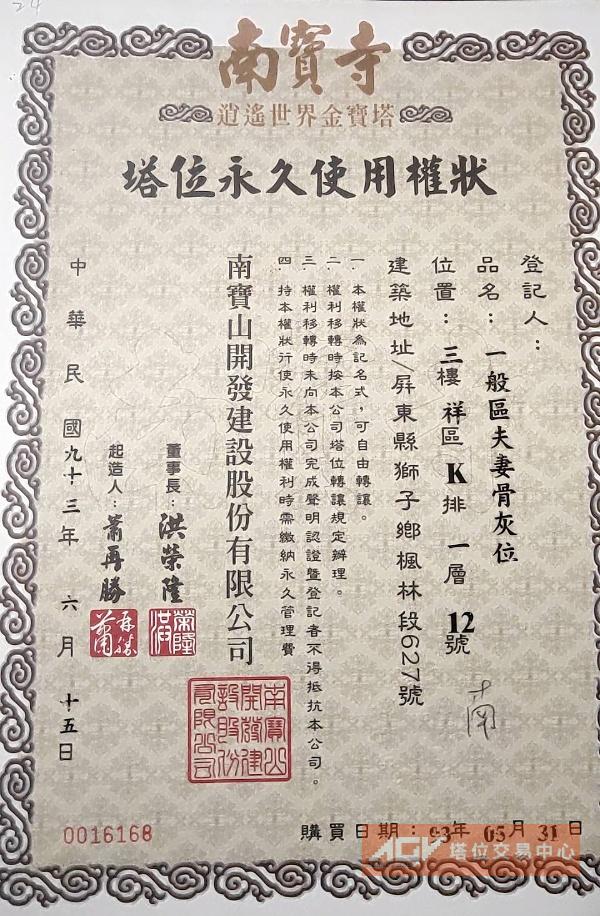 24
南寶寺
逍遙世界金寶塔
塔位永久使用權狀
登記人：
品名：一般區夫妻骨灰位
位置：三樓祥區K排一層12號
建築地址/屏東縣獅子鄉楓林段627號
一、本權狀為記名式，可自由轉讓。
二、權利移轉時按本公司塔位轉讓規定辦理。
三、權利移轉時未向本公司完成聲明認證暨登記者不得抵抗本公司。
四、持本權狀行使永久使用權利時需繳納永久管理費
南寶山開發建設股份有限公司
南寶山開發建設股份有限公司
董事長：洪榮隆
洪榮隆
起造人：蕭再勝
蕭再勝
中華民國九十三年六月十五日
南
購買日期：93年05月31日
0016168
ACK 塔位交易中心